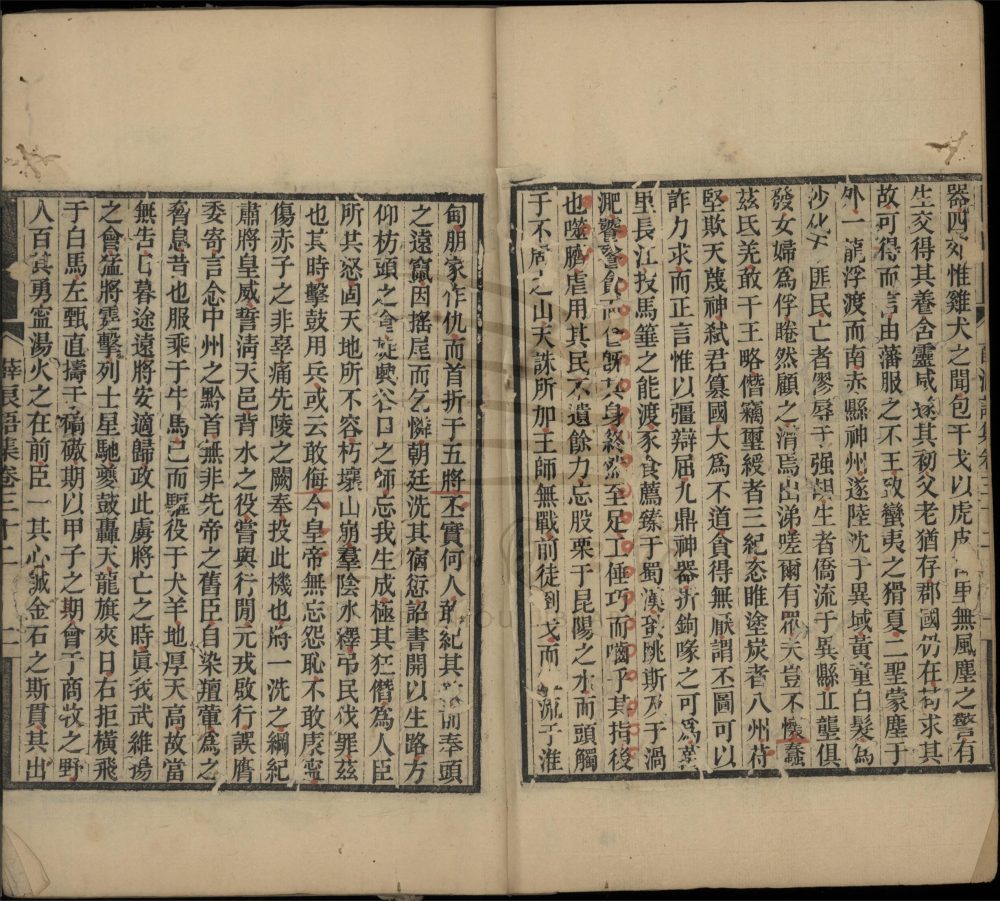 器四郊惟雞犬之聞包干戈以虎皮 車無風塵之警有
生交得其養含靈咸遂其初父老猶存郡國仍在苟求其
故可得而言由藩服之不王致蠻夷之猾夏二聖蒙塵于
外一龍浮渡而南赤縣神州遂陸沈于異域黃童白髮為
沙化 匪民亡者僇辱于强胡生者僑流于異縣丘壟俱
發女婦為俘睠然顧之潸焉出涕嗟爾有眾夫豈不懷蠢
茲氐羌敢干王略僭竊璽綬者三紀恣睢塗炭者八州苻
堅欺天蔑神弒君簒國大為不道貪得無厭謂不圖可以
詐力求而正言惟以彊辯屈九鼎神器折鉤喙之可為萬
里長江投馬箠之能渡豕食薦臻于蜀漢 佻斯及于渦
淝饕餮 而 訝其身終 至足工倕巧而嚙其指後
也噬臍虐用其民不遺餘力忘股栗于昆陽之水而頭觸
于不周之山天誅所加王師無戰前徒倒戈而 流于淮
甸朋家作仇而首折于五將丕實何人敢紀其 前奉頭
之遠竄因搖尾而乞憐朝廷洗其宿愆詔書開以生路方
仰枋頭之 旋輿谷口之師忘我生成極其狂僭為人臣
所其怒固天地所不容朽壤山崩羣陰水釋弔民伐罪茲
也其時擊鼓用兵或云敢侮今皇帝無忘怨恥不敢康寧
傷赤子之非辜痛先陵之闕奉投此機也將一洗之綱紀
肅將皇威誓淸天邑背水之役嘗輿行閒元戎啟行誤膺
委寄言念中州之黔首無非先帝之舊臣自染羶葷為之
奮息昔也服乘于牛馬已而驅役于犬羊地厚天高故當
無告日暮途遠將安適歸政此虜將亡之時眞我武維揚
之會猛將霆擊列士星馳鼛鼓轟天龍旗夾日右拒橫飛
于白馬左甄直擣于碻磝期以甲子之期會于商牧之野
人百其勇寍湯火之在前臣一其心誠金石之斯貫其出
薛浪語集卷三十二